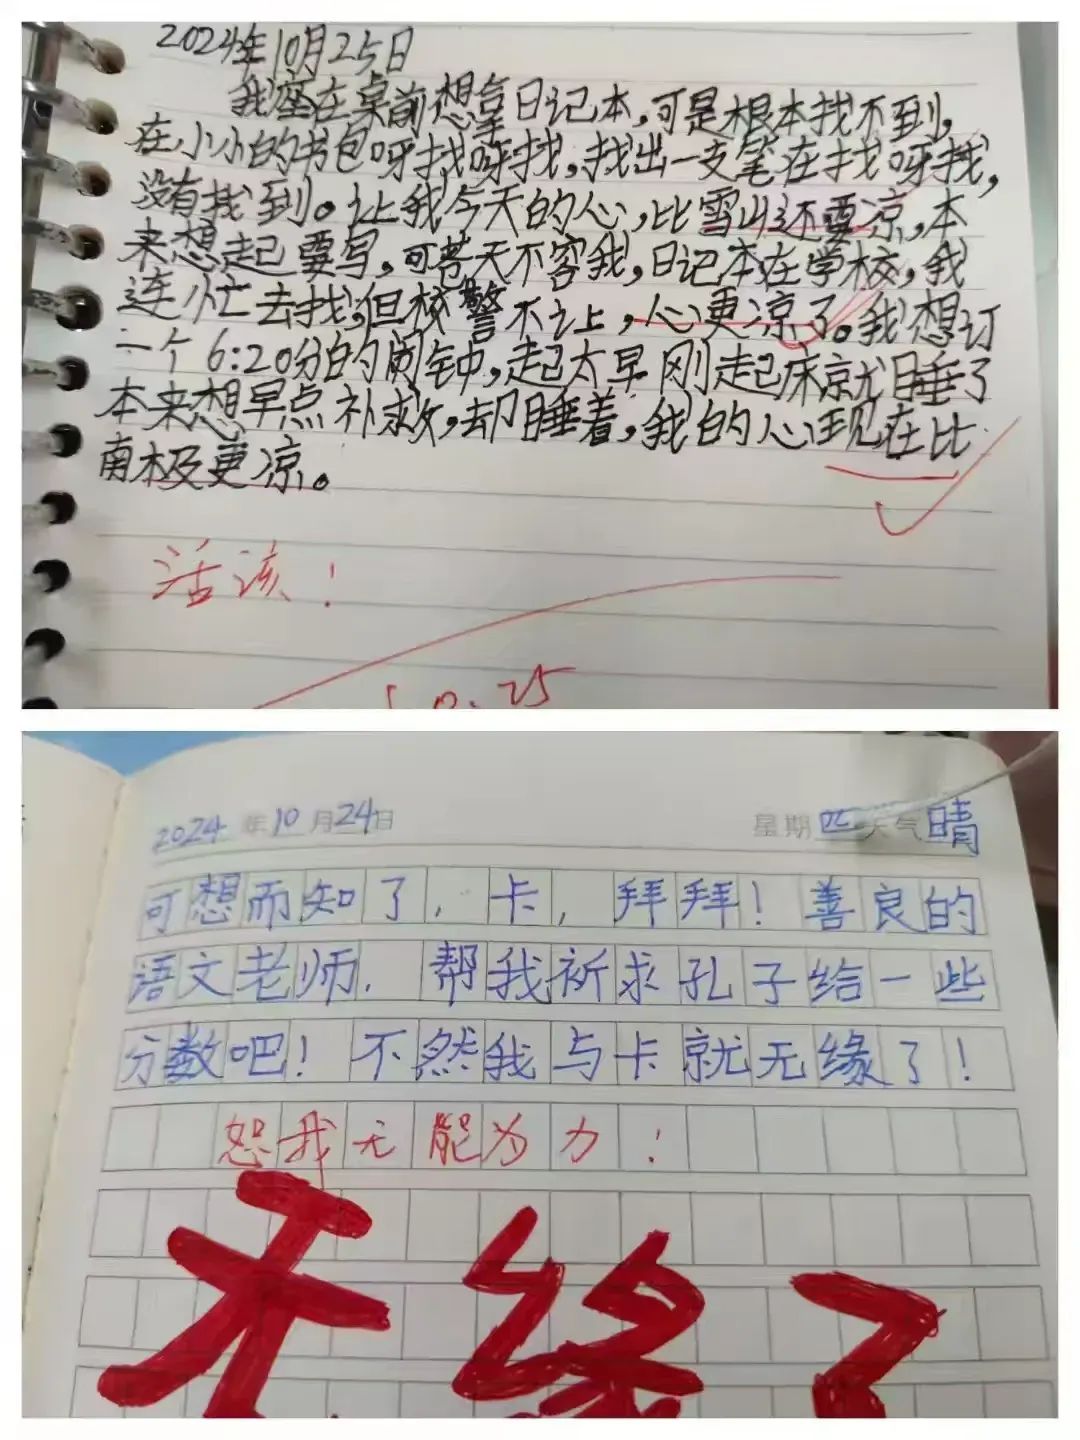 2024年10月25日
我座在桌前想拿日记本,可是根本找不到,
在小小的书包呀找呀找,找出一支笔在找呀找,
没有找到。让我今天的心,比雪山还要凉,本
来想起要写,可苍天不容我,日记本在学校,我
连忙去找,但校警不让,心更凉了。我想订
一个6:20分的闹钟,起太早刚起床就睡了
本来想早点补救,却睡着,我的心现在比
南极更凉。
活该!
10.25
2024年10月24日 星期四天气晴
可想而知了,卡,拜拜!善良的
语文老师,帮我祈求孔子给一些
分数吧!不然我与卡就无缘了!
恕我无能为力!
无缘了